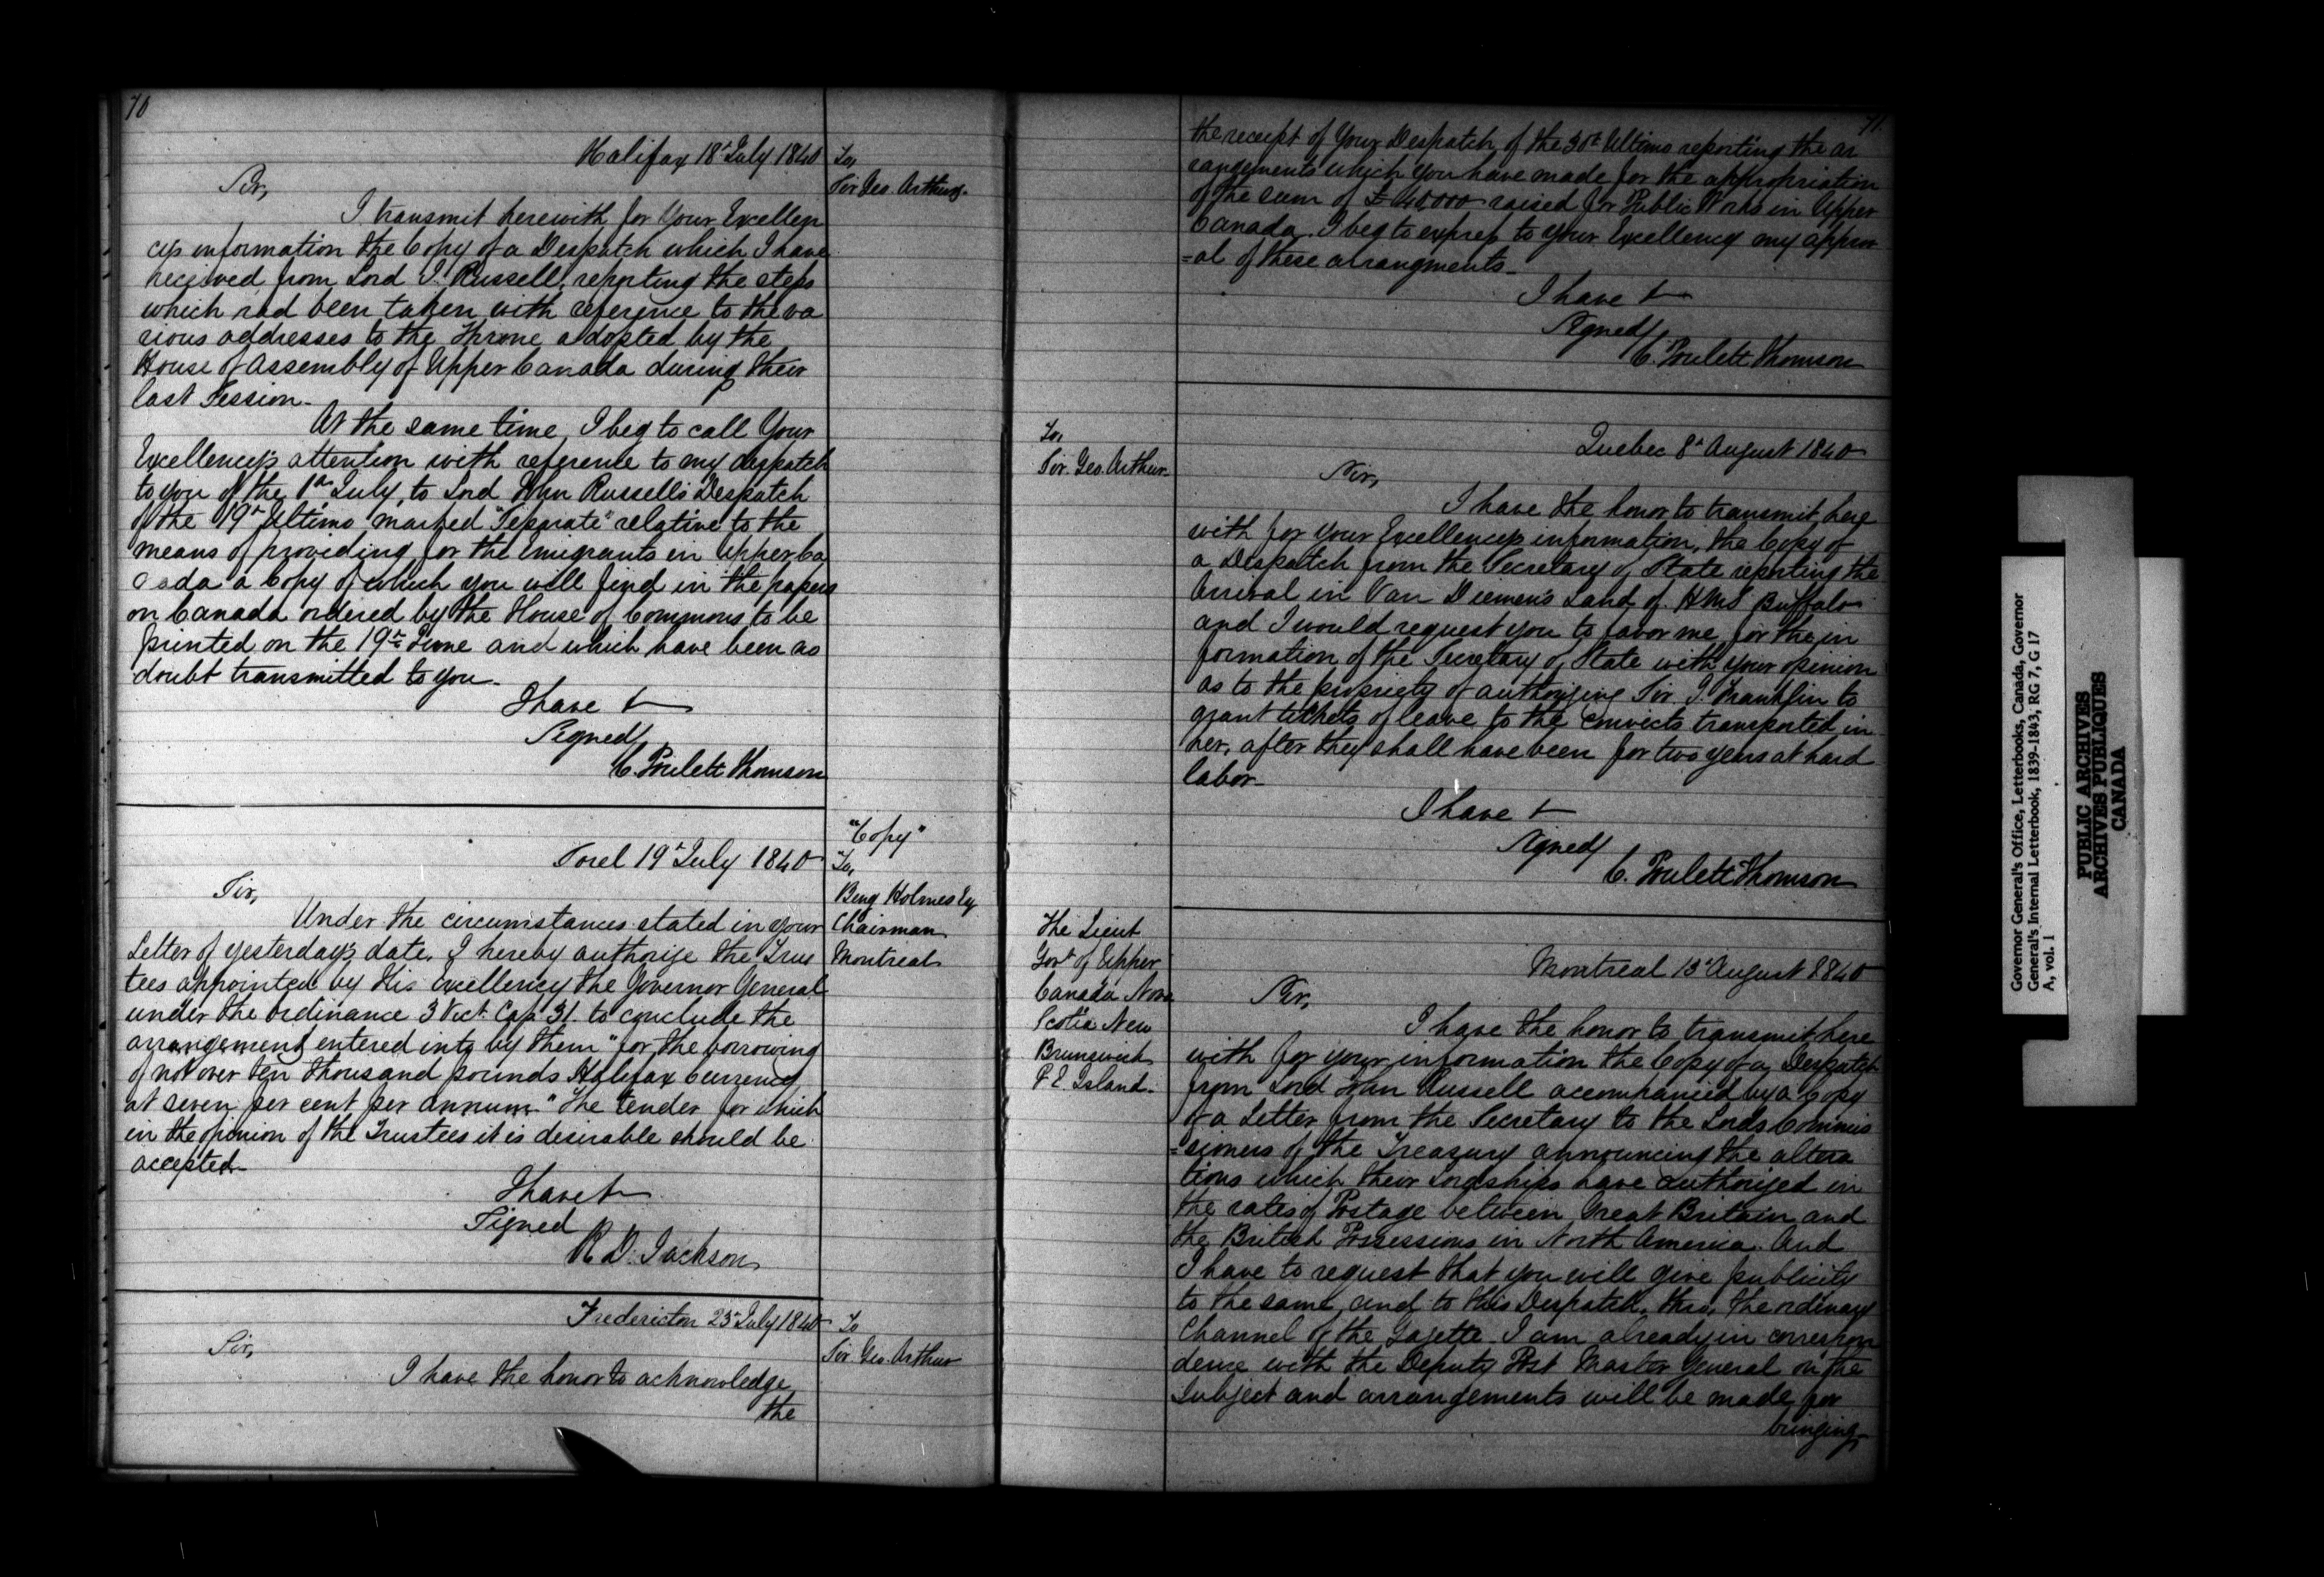 70
Halifax 18th July 1840
To,
Sir Geo. Arthur.
Sir,
I transmit herewith for Your Excellen
cys information the Copy of a Despatch which I have
received from Lord J. Russell, reporting the steps
which had been taken with reference to the va
rious addresses to the Throne adopted by the
House of Assembly of Upper Canada during their
last Session.
At the same time, I beg to call Your
Excellency's attention with reference to my despatch
to you of the 1st July, to Lord John Russell's Despatch
of the 19th Ultimo marked "Separate" relative to the
means of providing for the Emigrants in Upper Ca
nada a Copy of which you will find in the papers
on Canada ordered by the House of Commons to be
printed on the 19th June and which have been no
doubt transmitted to you.
I have &
Signed
C. Poulett Thomson
Sorel 19th July 1840
"Copy"
To,
Benj Holmes Esq
Chairman
Montreal
Sir,
Under the circumstances stated in your
Letter of yesterday's date, I hereby authorize the Trus
tees appointed by His Excellency the Governor General
under the Ordinance 3 Vict. Cap 31. to conclude the
arrangement entered into by them "for the borrowing
of not over ten thousand pounds Halifax Currency
at seven per cent per annum." The tender for which
in the opinion of the Trustees it is desirable should be
accepted.
I have &
Signed
R D. Jackson
Fredericton 23rd July 1840
To
Sir Geo. Arthur
Sir,
I have the honor to acknowledge
the
71.
the receipt of Your Despatch of the 30th Ultimo reporting the ar
rangements which you have made for the appropriation
of the sum of £40,000 raised for Public Works in Upper
Canada. I beg to express to your Excellency my approv
=al of these arrangments.
I have &
Signed
C. Poulett Thomson
Quebec 8th August 1840
To,
Sir. Geo. Arthur
Sir,
I have the honor to transmit here
with for your Excellency's information, the Copy of
a Despatch from the Secretary of State reporting the
Arrival in Van Diemen's Land of HMS Buffalo
and I would request you to favor me, for the in
formation of the Secretary of State with your opinion
as to the propriety of authorizing Sir J. Franklin to
grant tickets of leave to the convicts transported in
her, after they shall have been for two years at hard
labor.
I have &
Signed
C. Poulett Thomson
Montreal 13th August 1840
The Lieut
Govt of Upper
Canada Nova
Scotia New
Brunswick
P. E Island.
Sir,
I have the honor to transmit here
with for your information the Copy of a Despatch
from Lord John Russell accompanied by a Copy
of a Letter from the Secretary to the Lords Commis
=sioners of the Treasury announcing the altera
tions which their Lordships have authorized in
the rates of Postage between Great Britain and
the British Possessions in North America. And
I have to request that you will give publicity
to the same, and to this Despatch, thro, the ordinary
Channel of the Gazette. I am already in correspon
dence with the Deputy Post Master General on the
Subject and arrangements will be made for
bringing
Governor General's Office, Letterbooks, Canada, Governor
General's Internal Letterbook, 1839-1843, RG 7, G 17
A, vol. 1
PUBLIC ARCHIVES
ARCHIVES PUBLIQUES
CANADA